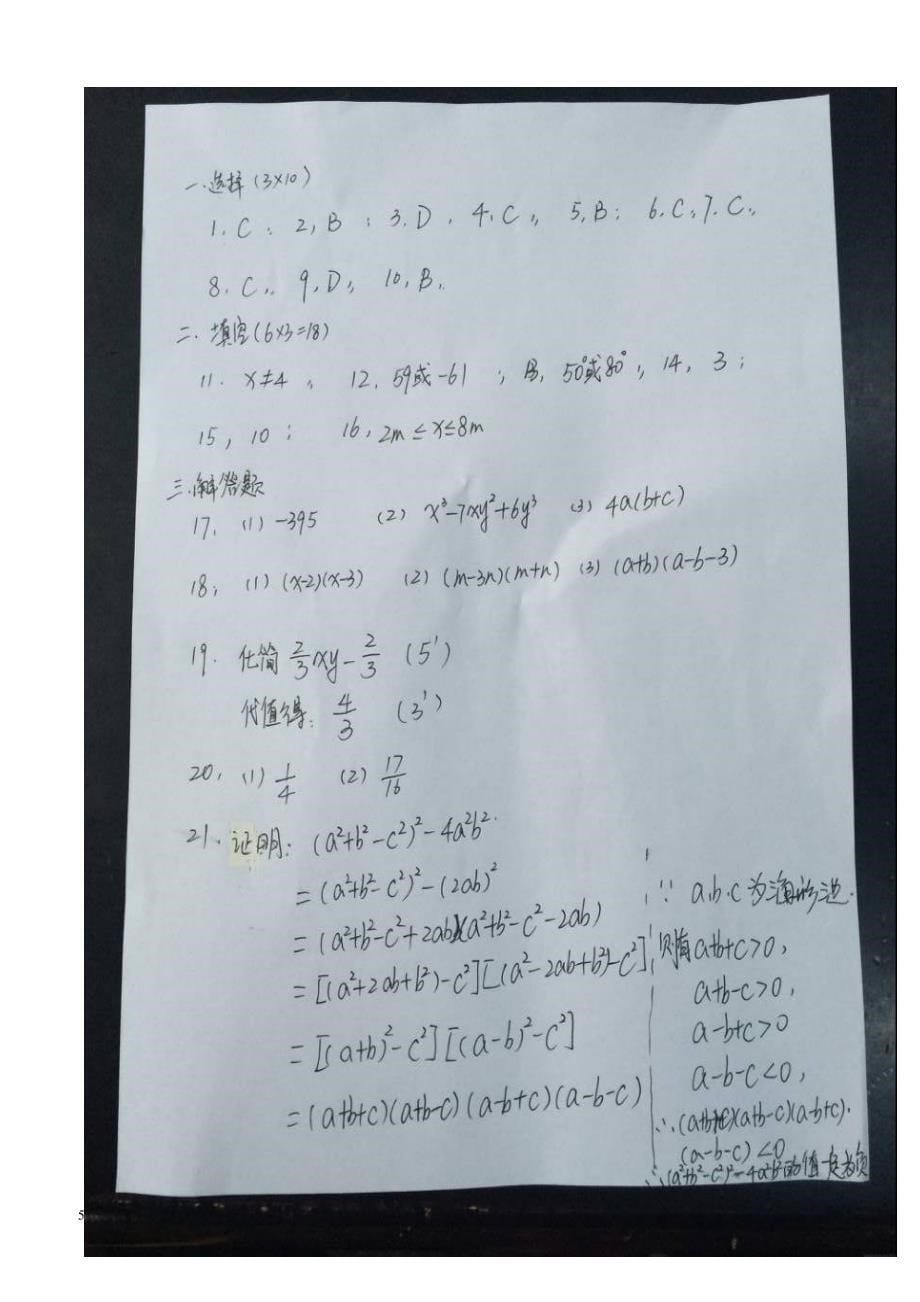 一.选择(3×10)
1.C; 2,B; 3.D. 4.C; 5,B; 6.C; 7.C;
8.C; 9,D; 10,B.
二.填空(6×3=18)
11. x≠4; 12, 59或-61; 13, 50°或80°; 14, 3;
15, 10; 16, 2m≤x≤8m
三.解答题
17. (1) -395 (2) x³-7xy²+6y³ (3) 4a(b+c)
18; (1) (x-2)(x-3) (2) (m-3n)(m+n) (3) (a+b)(a-b-3)
19. 化简 2/3xy-2/3 (5')
代值得: 4/3 (3')
20, (1) 1/4 (2) 17/16
21. 证明: (a²+b²-c²)²-4a²b²
=(a²+b²-c²)²-(2ab)²
=(a²+b²-c²+2ab)(a²+b²-c²-2ab)
=[(a²+2ab+b²)-c²][(a²-2ab+b²)-c²]
=[(a+b)²-c²][(a-b)²-c²]
=(a+b+c)(a+b-c)(a-b+c)(a-b-c)
∵ a.b.c为三角形三边.
则有a+b+c>0,
a+b-c>0,
a-b+c>0
a-b-c<0,
∴(a+b+c)(a+b-c)(a-b+c).
(a-b-c)<0
∴(a²+b²-c²)²-4a²b²的值一定为负
5